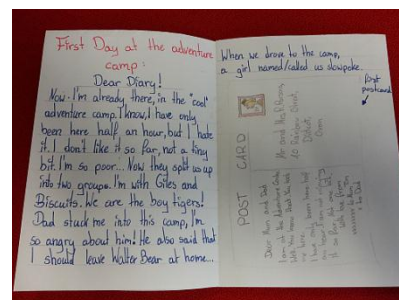 First Day at the adventure
camp:
Dear Diary!
Now I'm already there, in the "cool"
adventure camp. I know, I have only
been here half an hour, but I hate
it. I don't like it so far, not a tiny
bit. I'm so poor... Now they split us up
into two groups. I'm with Giles and
Biscuits. We are the boy tigers!
Dad stuck me into this camp, I'm
so angry about him! He also said that
I should leave Walter Bear at home...
When we drove to the camp,
a girl named/called us slowpoke.
first
postcard
POST CARD
Mr and Mrs
Street,
Dear Mum and Dad
I am at the Adventure Camp
I have only been here half
an hour
it so far